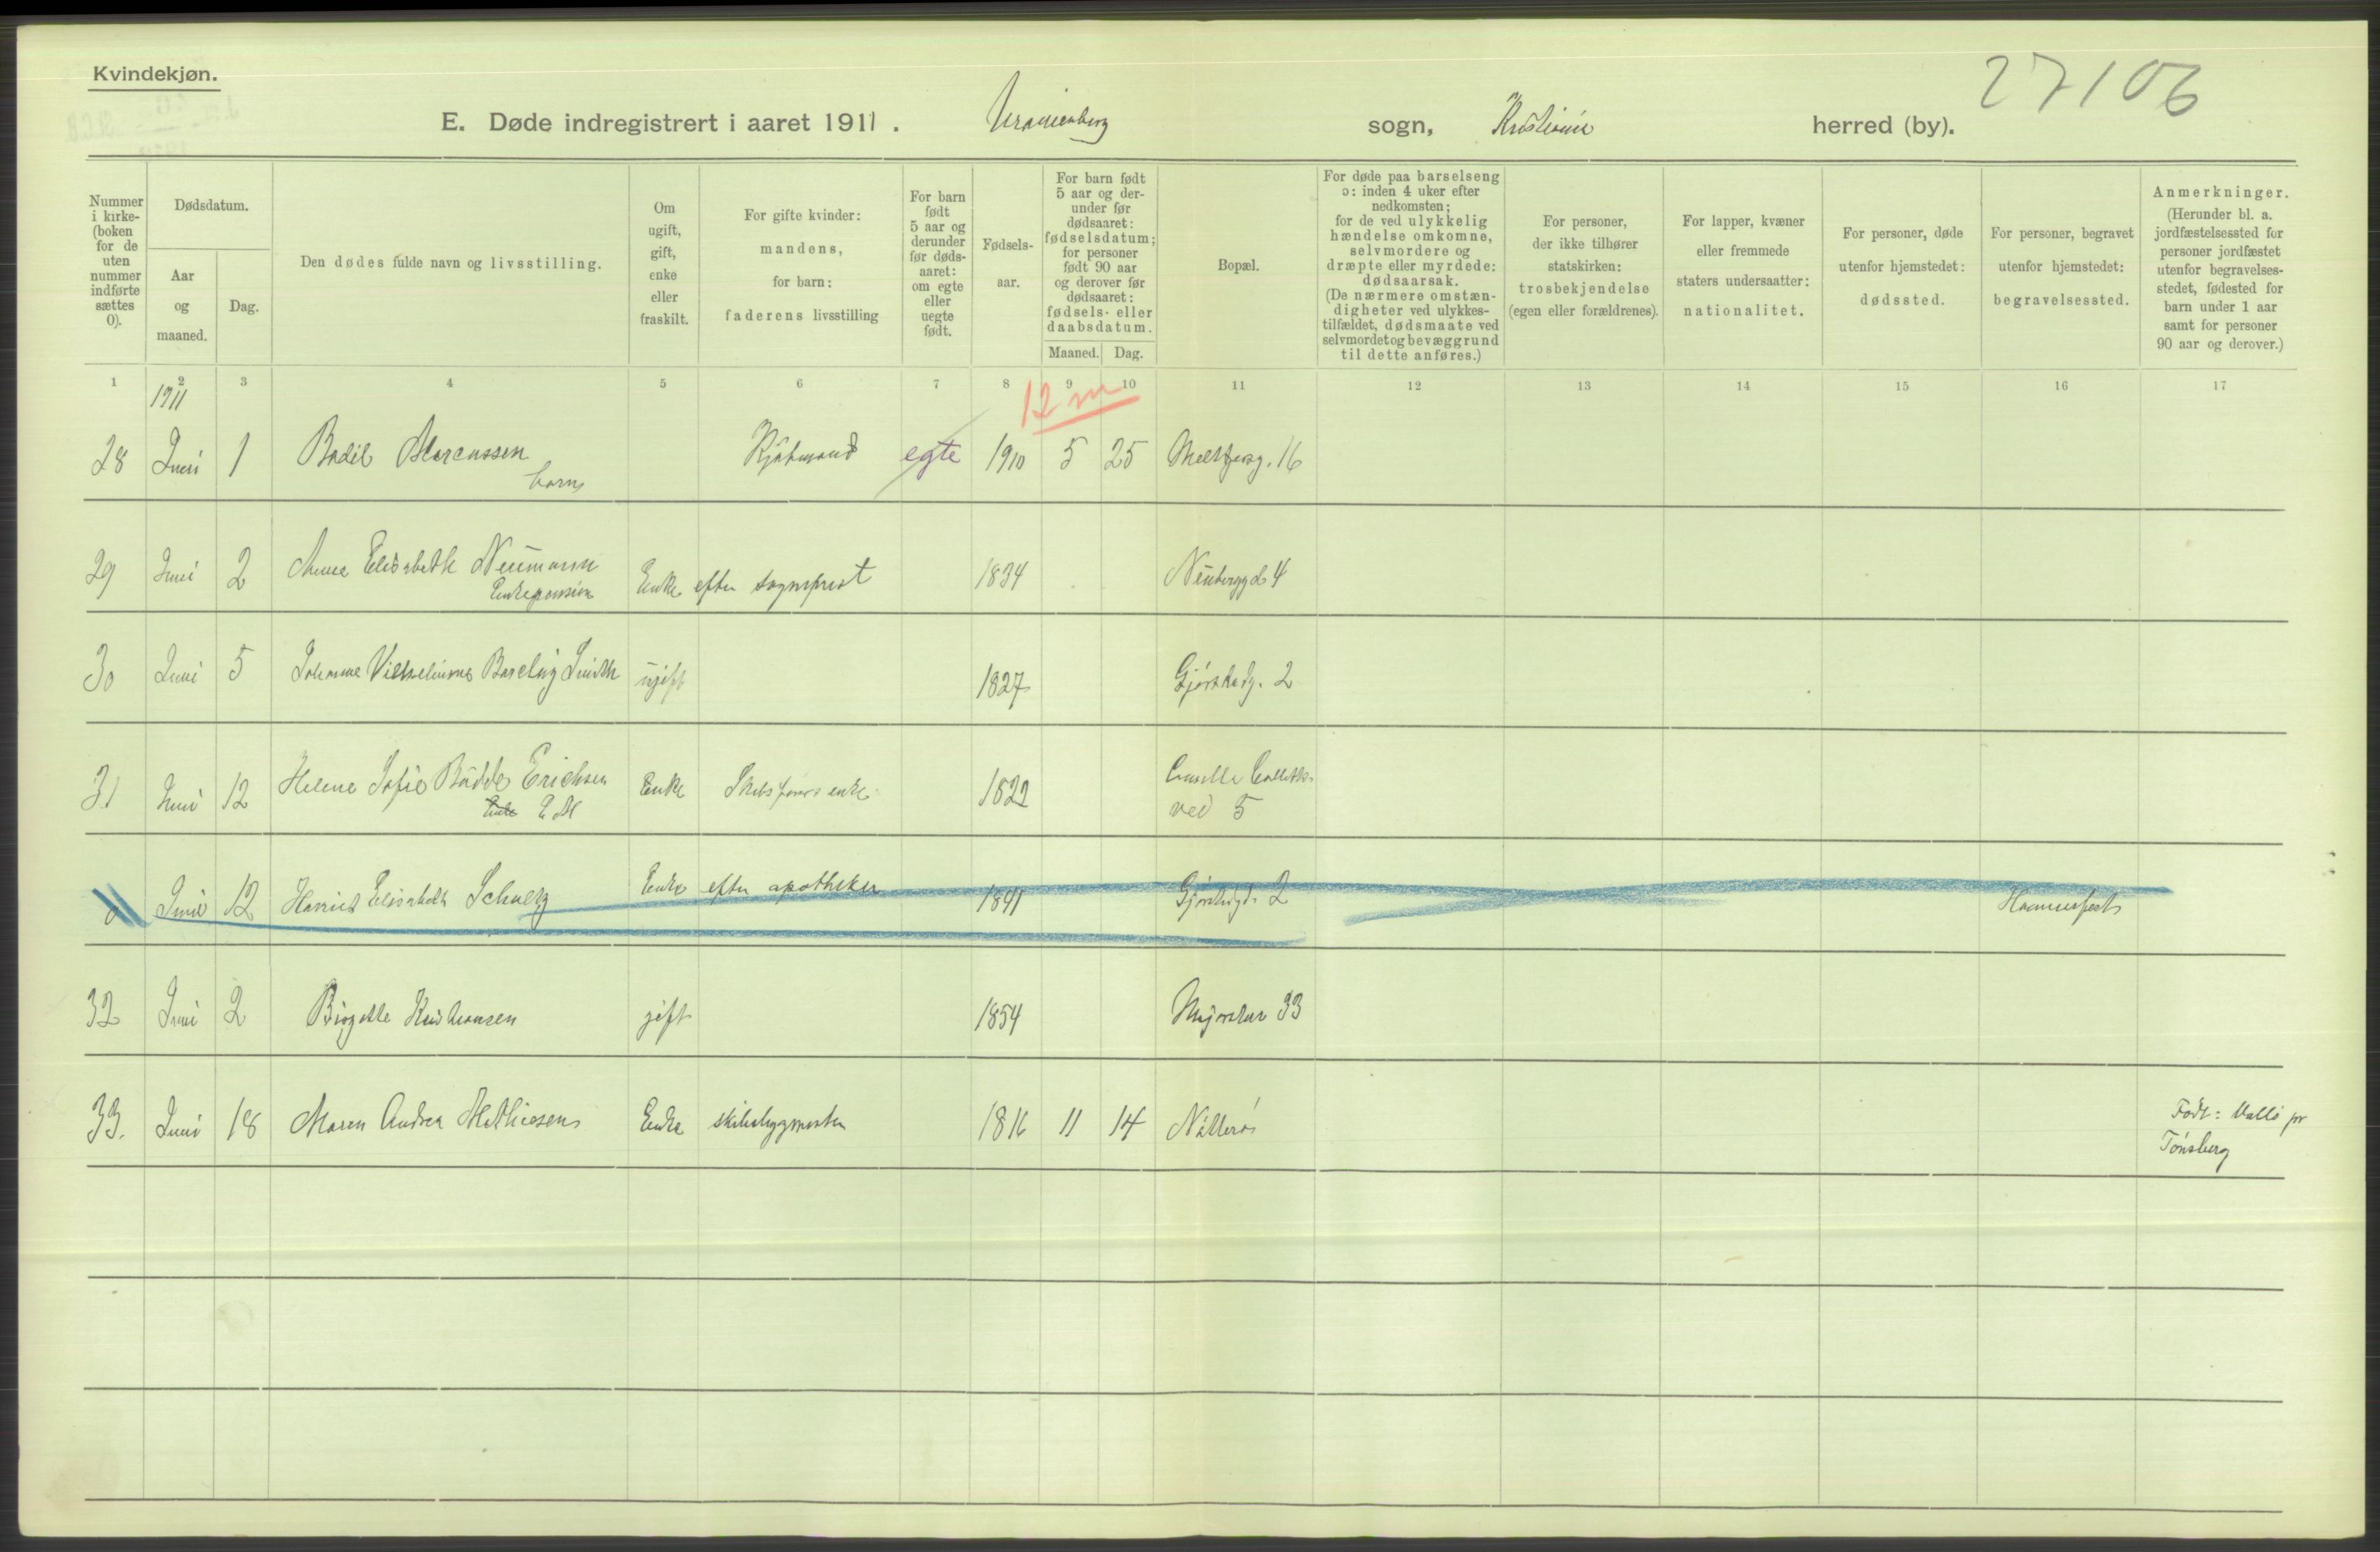 Kvindekjøn.
27106
E. Døde indregistrert i aaret 1911. Uranienborg sogn, Kristiania herred (by).
Nummer i kirke- (boken for de uten nummer indførte sættes 0).
Dødsdatum.
Aar og maaned.
Dag.
Den dødes fulde navn og livsstilling.
Om ugift, gift, enke eller fraskilt.
For gifte kvinder: mandens, for barn: faderens livsstilling
For barn født 5 aar og derunder før døds- aaret: om egte eller uegte født.
Fødsels- aar.
For barn født 5 aar og der- under før dødsaaret: fødselsdatum; for personer født 90 aar og derover før dødsaaret: fødsels- eller daabsdatum.
Maaned. Dag.
Bopæl.
For døde paa barselseng ɔ: inden 4 uker efter nedkomsten; for de ved ulykkelig hændelse omkomne, selvmordere og dræpte eller myrdede: dødsaarsak. (De nærmere omstæn- digheter ved ulykkes- tilfældet, dødsmaate ved selvmordet og bevæggrund til dette anføres.)
For personer, der ikke tilhører statskirken: trosbekjendelse (egen eller forældrenes).
For lapper, kvæner eller fremmede staters undersaatter: nationalitet.
For personer, døde utenfor hjemstedet: dødssted.
For personer, begravet utenfor hjemstedet: begravelsessted.
Anmerkninger. (Herunder bl. a. jordfæstelsessted for personer jordfæstet utenfor begravelses- stedet, fødested for barn under 1 aar samt for personer 90 aar og derover.)
1 2 3 4 5 6 7 8 9 10 11 12 13 14 15 16 17
1911
12 m
28 Juni 1 Bodil Marcussen Kjøbmand egte 1910 5 25 16
barn
29 Juni 2 Anna Elisabeth Neumann Enke efter sogneprest 1834 Neubergg d 4
Enkepension
30 Juni 5 Johanne Vilhelmine Barclay Smith ugift 1827 Gjørstadg. 2
31 Juni 12 Helene Sofie Budde Erichsen Enke Skibsførers enke 1822 Camilla Colletts
Enke E M ved 5
Juni 12 Harriet Elisabeth Schwerz Enke efter apotheker 1841 2 Hammerfest
32 Juni 2 Birgitte Kristiansen gift 1854 Majorstuv 33
33. Juni 18 Maren Andrea Mathiesen Enke skibsbygmester 1816 11 14 Nøtterø Født: Valløpr
Tønsberg